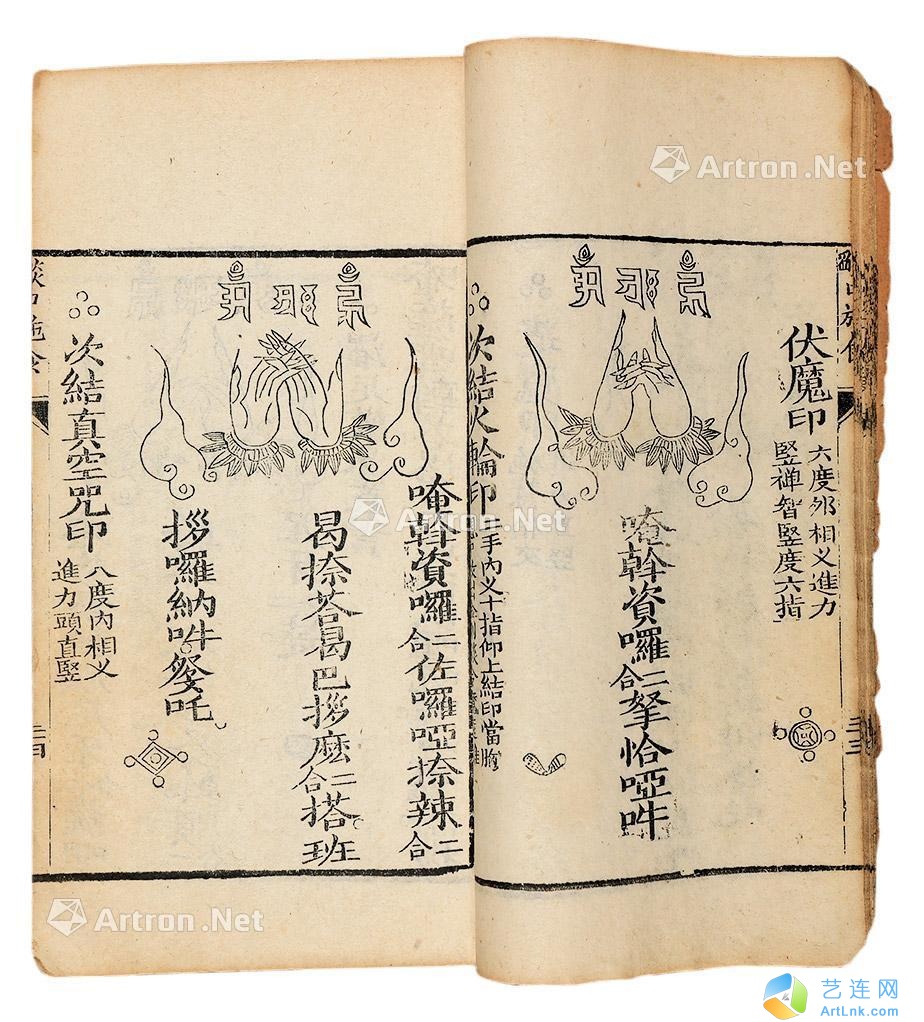 伏魔印
六度外相义進力
竪禅智竪度六指
唵斡資囉二合拏恰啞吽
次結火輪印
手内义十指仰上結印當胸
唵斡資囉二合佐囉啞捺辣二合
曷捺荅曷巴拶麼二合搭班
拶囉納吽癹吒
次結真空咒印
八度内相义
進力頭直竪
二十三
二十四
Artron.Net
Artron.Net
Artron.Net
艺连网
ArtLnk.com